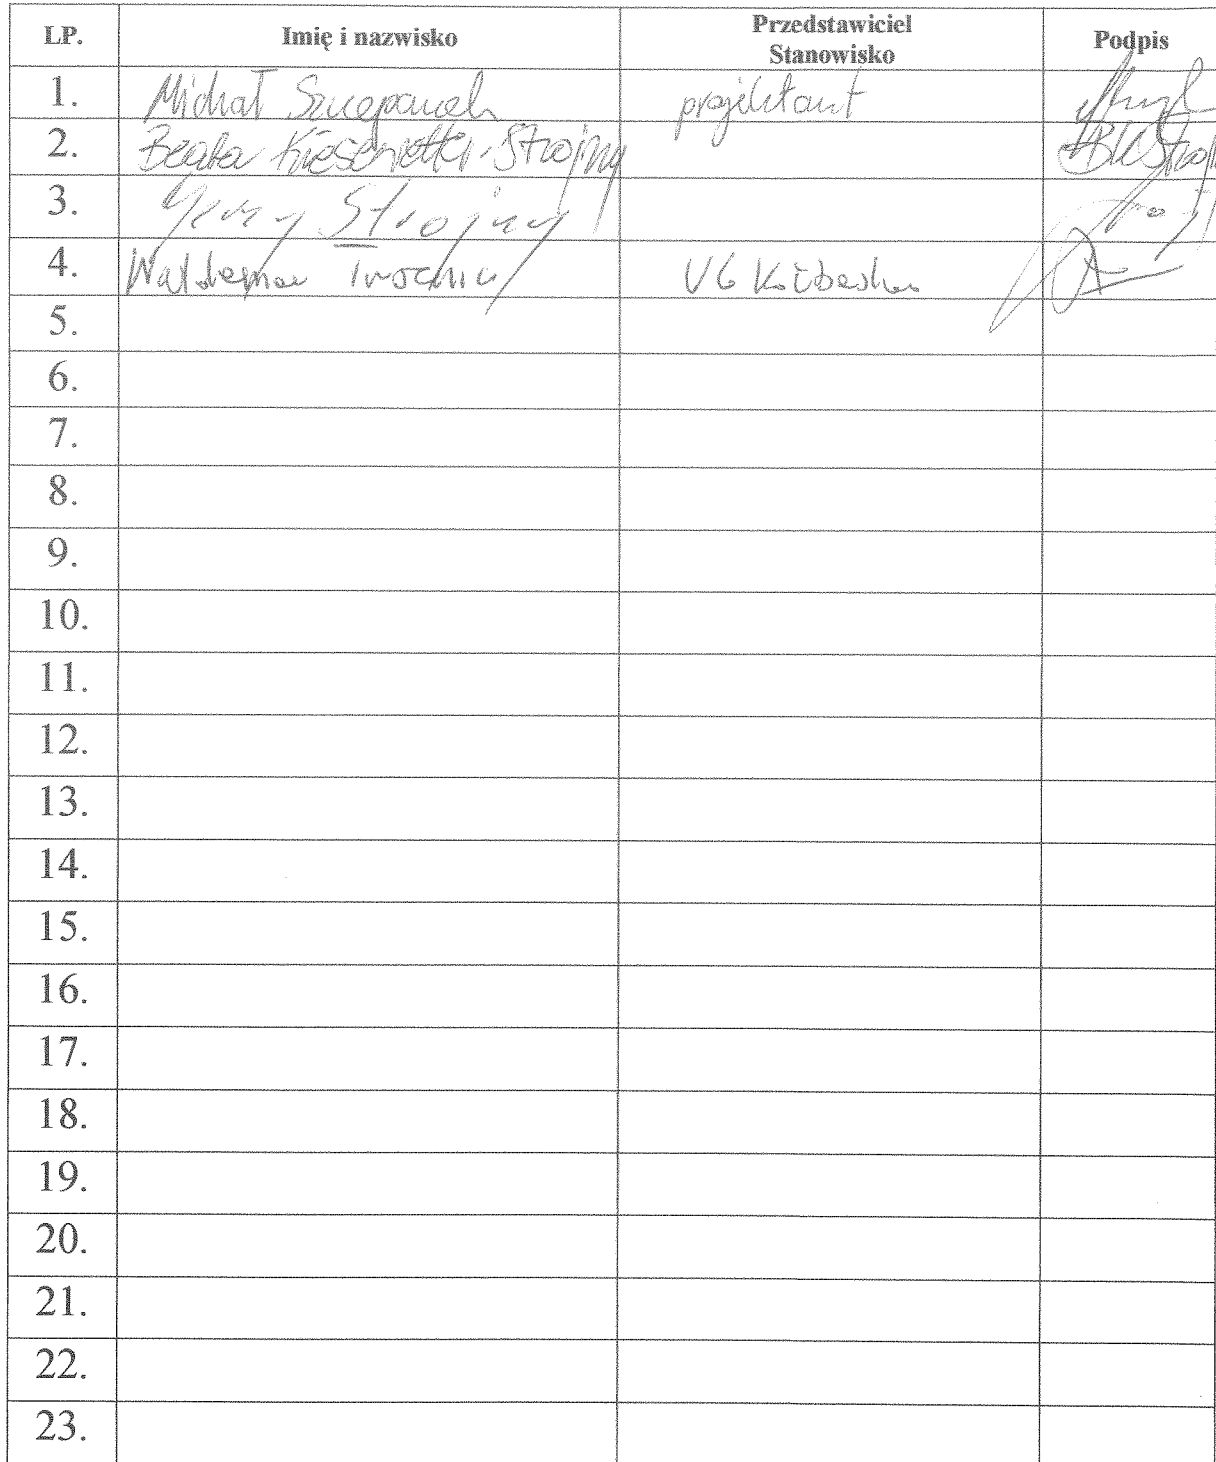 LP. Imię i nazwisko Przedstawiciel Stanowisko Podpis
1. Michał Szczepanek projektant
2. Beata Strojny
3. Jerzy Strojny
4. Waldemar UG
5.
6.
7.
8.
9.
10.
11.
12.
13.
14.
15.
16.
17.
18.
19.
20.
21.
22.
23.